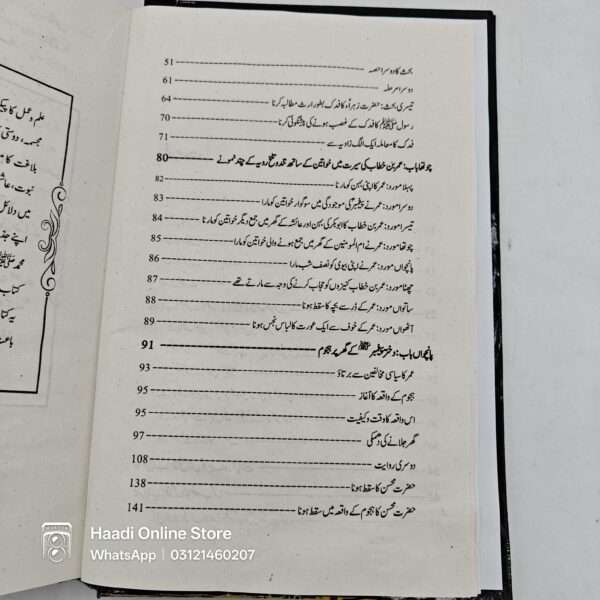 بحث کا دوسرا حصہ ---- 51
دوسرا مرحلہ ---- 61
تیسری بحث: حضرت زہراءؑ کا فدک بطور ارث مطالبہ کرنا ---- 64
رسول ﷺ کا فدک کے غصب ہونے کی پیشگوئی کرنا ---- 70
فدک کا معاملہ ایک الگ زاویہ سے ---- 71
چوتھا باب: عمر بن خطاب کی سیرت میں خواتین کے ساتھ تند و تلخ رویہ کے چند نمونے ---- 80
پہلا مورد: عمر کا اپنی بہن کو مارنا ---- 82
دوسرا مورد: عمر نے پیغمبرؐ کی موجودگی میں سوگوار خواتین کو مارا ---- 83
تیسرا مورد: عمر بن خطاب کا ابوبکر کی بہن اور عائشہ کے گھر میں جمع دیگر خواتین کو مارنا ---- 84
چوتھا مورد: عمر نے ام المومنین کے گھر میں جمع ہونے والی خواتین کو مارا ---- 85
پانچواں مورد: عمر نے اپنی بیوی کو نصف شب مارا ---- 86
چھٹا مورد: عمر بن خطاب کنیزوں کو حجاب کرنے کی وجہ سے مارتے تھے ---- 87
ساتواں مورد: عمر کے ڈر سے بچہ کا سقط ہونا ---- 88
آٹھواں مورد: عمر کے خوف سے ایک عورت کا لباس نجس ہونا ---- 89
پانچواں باب: دختر پیغمبر ﷺ کے گھر پر ہجوم ---- 91
عمر کا سیاسی مخالفین سے برتاؤ ---- 93
ہجوم کے واقعہ کا آغاز ---- 95
اس واقعہ کا وقت و کیفیت ---- 95
گھر جلانے کی دھمکی ---- 97
دوسری روایت ---- 108
حضرت محسن کا سقط ہونا ---- 138
حضرت محسن کا ہجوم کے واقعہ میں سقط ہونا ---- 141
علم و عمل کا پیک
مجسمہ، دوستی ک
بلاغت کا م
نبوت، عائش
میں دلائل
اپنے جذ
محمد ﷺ
کتاب
یہ کتا
باعث
Haadi Online Store
WhatsApp | 03121460207